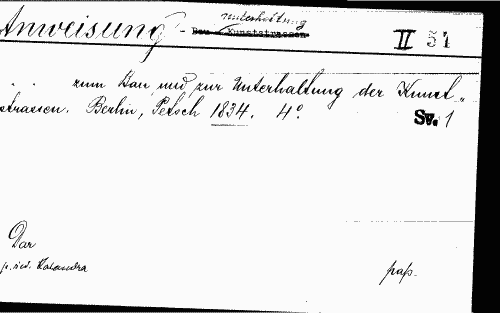 Anweisung - Bau Kunststrassen Unterhaltung II 51
. . zum Bau und zur Unterhaltung der Kunst„
strassen. Berlin, Petsch 1834. 4°. Sv. 1
Dar
pap.